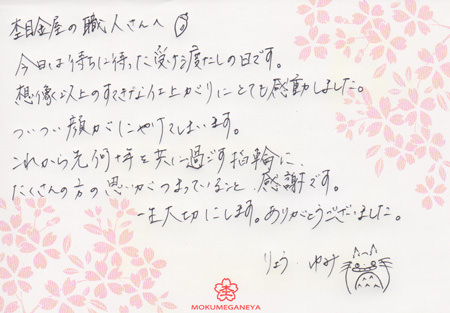 杢目金屋の職人さんへ
今日は待ちに待った受け渡しの日です。
想像以上のすてきな仕上がりにとても感動しました。
ついつい顔がにやけてしまいます。
これから先何十年と共に過ごす指輪に、
たくさんの方の思いがつまっていること 感謝です。
一生大切にします。ありがとうございました。
りょう・ゆみ
MOKUMEGANEYA